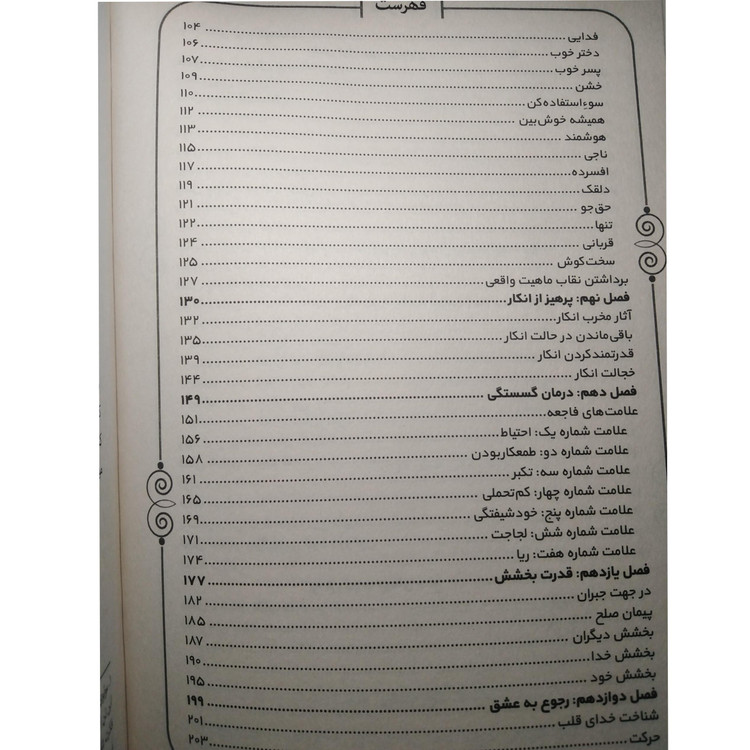 فهرست
فدایی ۱۰۴
دختر خوب ۱۰۶
پسر خوب ۱۰۷
خشن ۱۰۹
سوءاستفاده‌کن ۱۱۰
همیشه خوش‌بین ۱۱۲
هوشمند ۱۱۳
ناجی ۱۱۵
افسرده ۱۱۷
دلقک ۱۱۹
حق‌جو ۱۲۱
تنها ۱۲۲
قربانی ۱۲۴
سخت‌کوش ۱۲۵
برداشتن نقاب ماهیت واقعی ۱۲۷
فصل نهم: پرهیز از انکار ۱۳۰
آثار مخرب انکار ۱۳۲
باقی‌ماندن در حالت انکار ۱۳۵
قدرتمندکردن انکار ۱۳۹
خجالت انکار ۱۴۴
فصل دهم: درمان گسستگی ۱۴۹
علامت‌های فاجعه ۱۵۱
علامت شماره یک: احتیاط ۱۵۶
علامت شماره دو: طمعکاربودن ۱۵۸
علامت شماره سه: تکبر ۱۶۱
علامت شماره چهار: کم‌تحملی ۱۶۵
علامت شماره پنج: خودشیفتگی ۱۶۹
علامت شماره شش: لجاجت ۱۷۱
علامت شماره هفت: ریا ۱۷۴
فصل یازدهم: قدرت بخشش ۱۷۷
در جهت جبران ۱۸۲
پیمان صلح ۱۸۵
بخشش دیگران ۱۸۷
بخشش خدا ۱۹۰
بخشش خود ۱۹۵
فصل دوازدهم: رجوع به عشق ۱۹۹
شناخت خدای قلب ۲۰۱
حرکت ۲۰۳